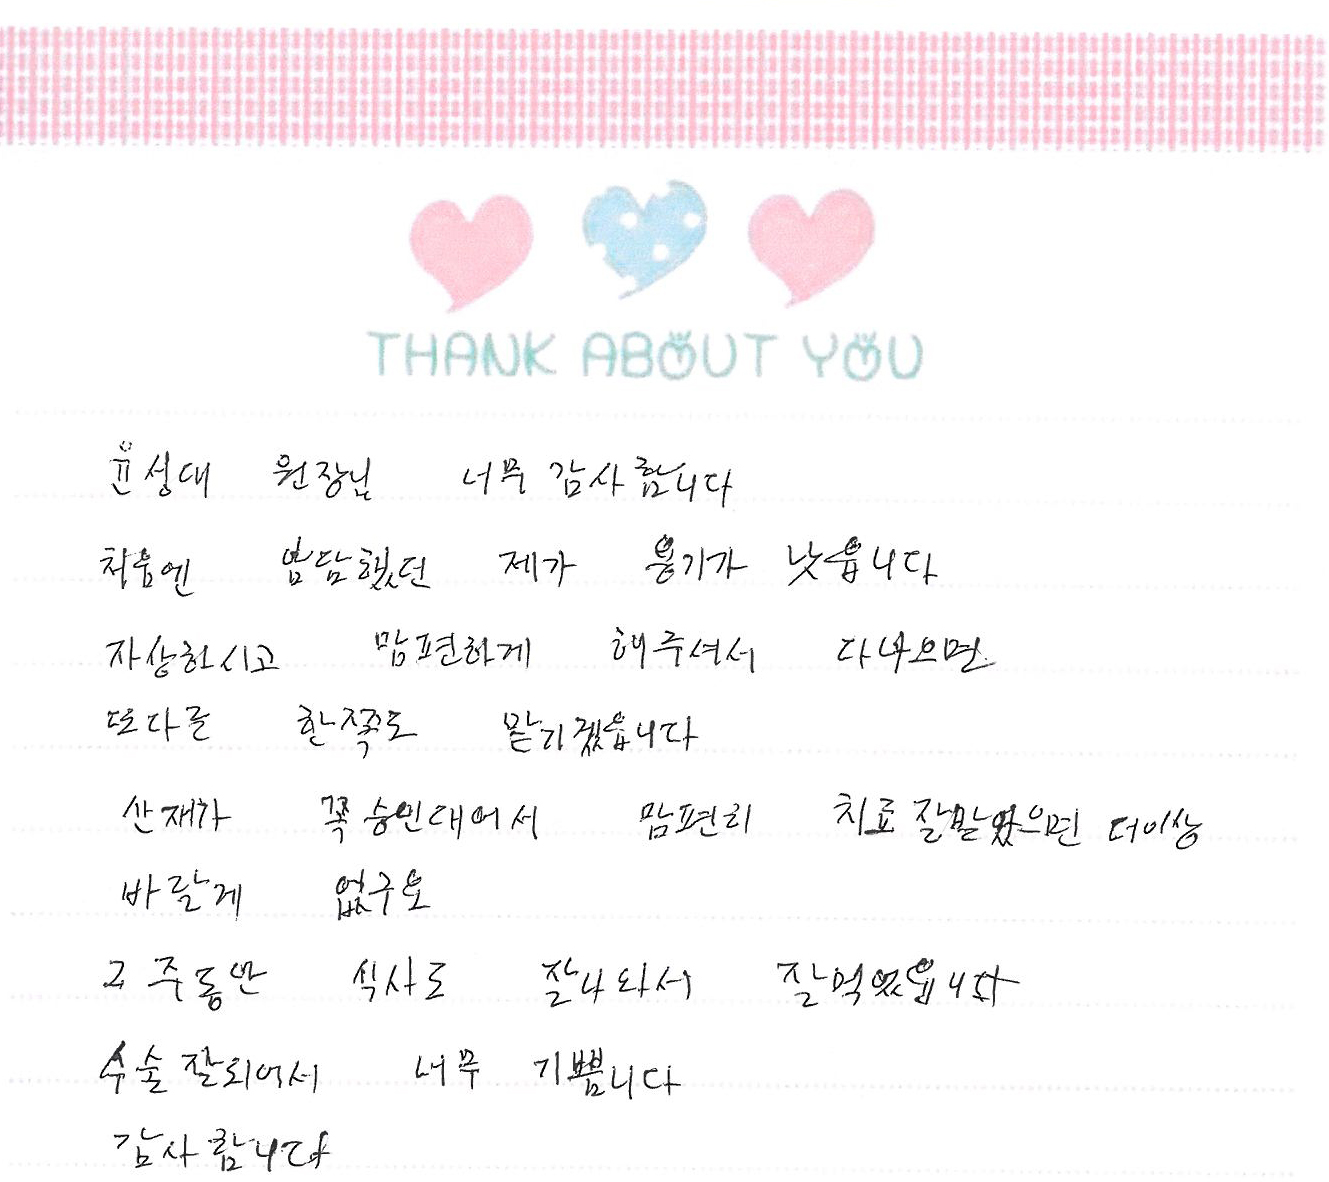 THANK ABOUT YOU
윤성대 원장님 너무 감사합니다
처음엔 밤담했던 제가 용기가 낫읍니다
자상하시고 맘편하게 해주셔서 다나으면
또다른 한쪽도 맡기겠읍니다
산재가 꼭승인대어서 맘편히 치료잘받았으면 더이상
바랄게 없구요
2주동안 식사도 잘나와서 잘먹었읍니다
수술잘되어서 너무 기쁩니다
감사합니다